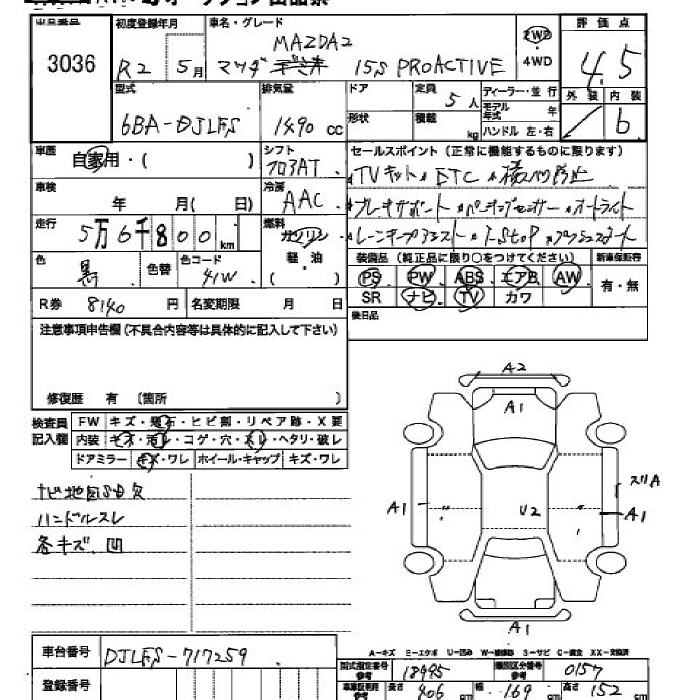 出品番号 初度登録年月 車名・グレード 評価点
3036 R2 5月 マツダ MAZDA2 15S PROACTIVE 2WD ・ 4WD 4.5
型式 排気量 ドア 定員 ディーラー・並行 外装 内装
6BA-DJLFS 1490 cc 5人 モデル年式 年 b
形状 積載 kg ハンドル 左・右
車歴 自家用・( ) シフト フロアAT セールスポイント (正常に機能するものに限ります)
車検 年 月( 日) 冷房 AAC ・TVキット ・ETC
走行 5万6千800km 燃料 ガソリン ・ブレーキサポート ・オートライト
軽・油 ( )
色 黒 色替 色コード 41W 装備品 (純正品に限り○をつけてください) 新車保証書
PS PW ABS エアB AW 有・無
R券 8140円 名変期限 月 日 SR ナビ TV カワ
注意事項申告欄 (不具合内容等は具体的に記入して下さい) 後日品
修復歴 有 〔箇所 〕
検査員記入欄 FW キズ・飛石・ヒビ割・リペア跡・X要
内装 キズ・汚レ・コゲ・穴・スレ・ヘタリ・破レ
ドアミラー キズ・ワレ ホイール・キャップ キズ・ワレ
ナビ地図SD欠
ハンドルスレ
各キズ、凹
A2
A1
スリA
A1 U2 A1
A1
A-キズ E-エクボ U-凹み W-補修跡 S-サビ C-腐食 XX-交換済
車台番号 DJLFS-717259
型式指定番号 参考 18495 類別区分番号 参考 0157
登録番号 車検証用 参考 長さ 406 cm 幅 169 cm 高さ 152 cm